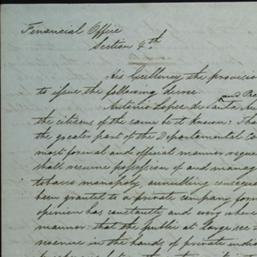 Financial Office
Section 4th
His Excellency the provision
to issue the following decree
Antonio Lopez de Santa An
and Pre
the citizens of the same be it known: Tha
the greater part of the Departmental Co
most formal and official manner reque
shall resume possession of and manag
tobacco monopoly, annulling consequen
been granted to a private company form
opinion has constantly and every where
manner that the public at large see
revenue in the hands of private indi